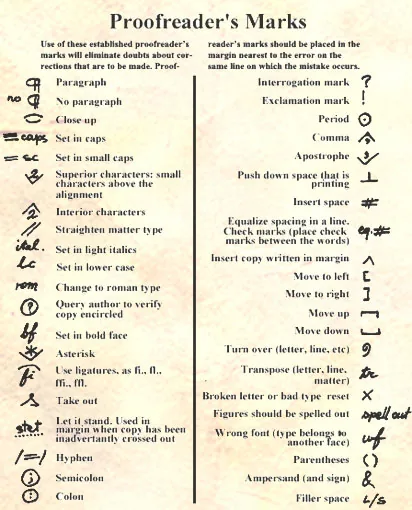 Proofreader's Marks
Use of these established proofreader's
marks will eliminate doubts about cor-
rections that are to be made. Proof-
reader's marks should be placed in the
margin nearest to the error on the
same line on which the mistake occurs.
¶ Paragraph
no ¶ No paragraph
Close up
caps Set in caps
sc Set in small caps
2 Superior characters: small
characters above the
alignment
2 Interior characters
// Straighten matter type
ital. Set in light italics
lc Set in lower case
rom Change to roman type
? Query author to verify
copy encircled
bf Set in bold face
* Asterisk
fi Use ligatures, as fi., fl.,
ffi., ffl.
Take out
stet Let it stand. Used in
margin when copy has been
inadvertantly crossed out
/=/ Hyphen
; Semicolon
: Colon
Interrogation mark ?
Exclamation mark !
Period
Comma ,
Apostrophe
Push down space that is ⊥
printing
Insert space #
Equalize spacing in a line.
Check marks (place check eq.#
marks between the words)
Insert copy written in margin ^
Move to left [
Move to right ]
Move up
Move down
Turn over (letter, line, etc) 9
Transpose (letter, line, tr
matter)
Broken letter or bad type reset X
Figures should be spelled out spell out
Wrong font (type belongs to wf
another face)
Parentheses ( )
Ampersand (and sign) &
Filler space L/s